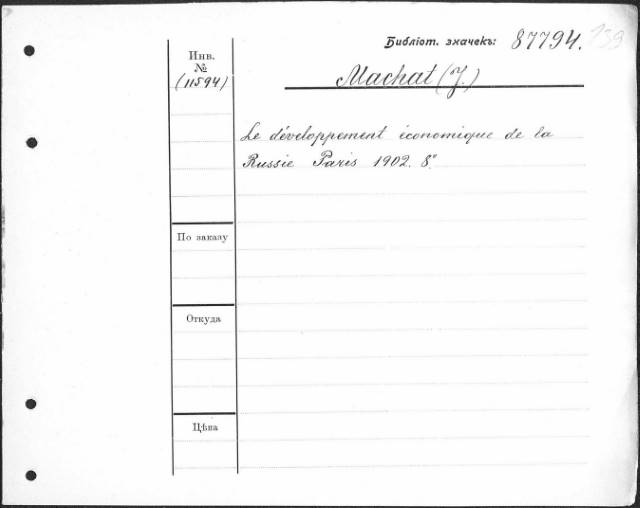 Библіот. значекъ: 87794. 139
Инв.
№
(11594)
Machat (J.)
Le développement économique de la
Russie Paris 1902. 8º.
По заказу
Откуда
Цѣна